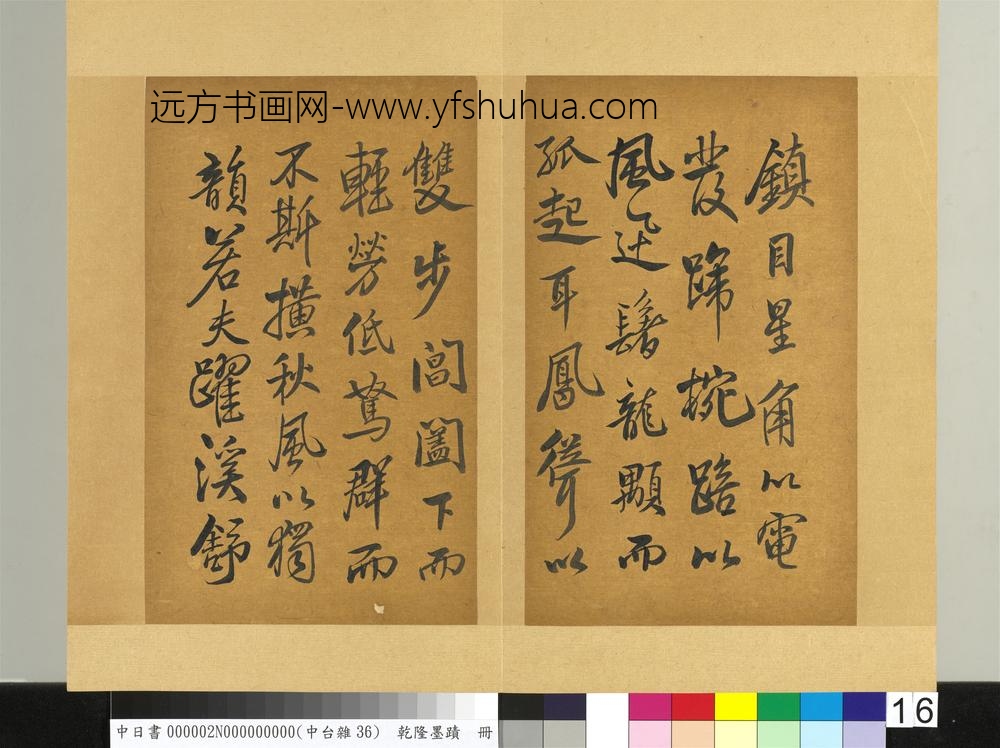 远方书画网-www.yfshuhua.com
鎮目星角以電
發蹄椀踣以
風迅鬐龍顒而
孤起耳鳳聳以
雙步閶闔下而
輕勞低驚群而
不斯橫秋風以獨
韻若夫躍溪舒
中日書000002N000000000(中台雜36) 乾隆墨蹟 冊
16